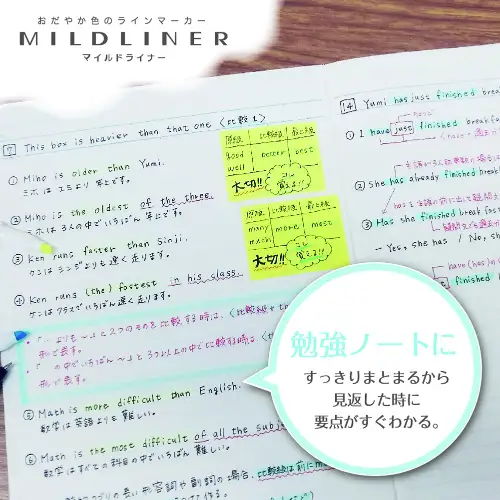 おだやか色のラインマーカー
MILDLINER
マイルドライナー
7 This box is heavier than that one 〈比較1〉
① Miho is older than Yumi.
ミホはユミより年上です。
② Miho is the oldest of the three.
ミホは3人の中でいちばん年上です。
③ Ken runs faster than Sinji.
ケンはシンジよりも速く走ります。
④ Ken runs (the) fastest in his class.
ケンはクラスでいちばん速く走ります。
・「…よりも〜」と2つのものを比較する時は、〈比較級+
形で表す。
の中でいちばん〜」と3つ以上の中で比較する時は
形で表す。
⑤ Math is more difficult than English.
数学は英語よりも難しい。
⑥ Math is the most difficult of all the subj
数学はすべての科目の中でいちばん難しい。
長い形容詞や副詞の場合、比較級は前に
原級 比較級 最上級
good better best
well
大切!! 覚えよ!
原級 比較級 最上級
many more most
much
大切!!
14 Yumi has just finished break
① I have just finished breakf
② She has already finished break
③ Has she finished break
- Yes, she has / No, sh
have(has)
finished
勉強ノートに
すっきりまとまるから
見返した時に
要点がすぐわかる。